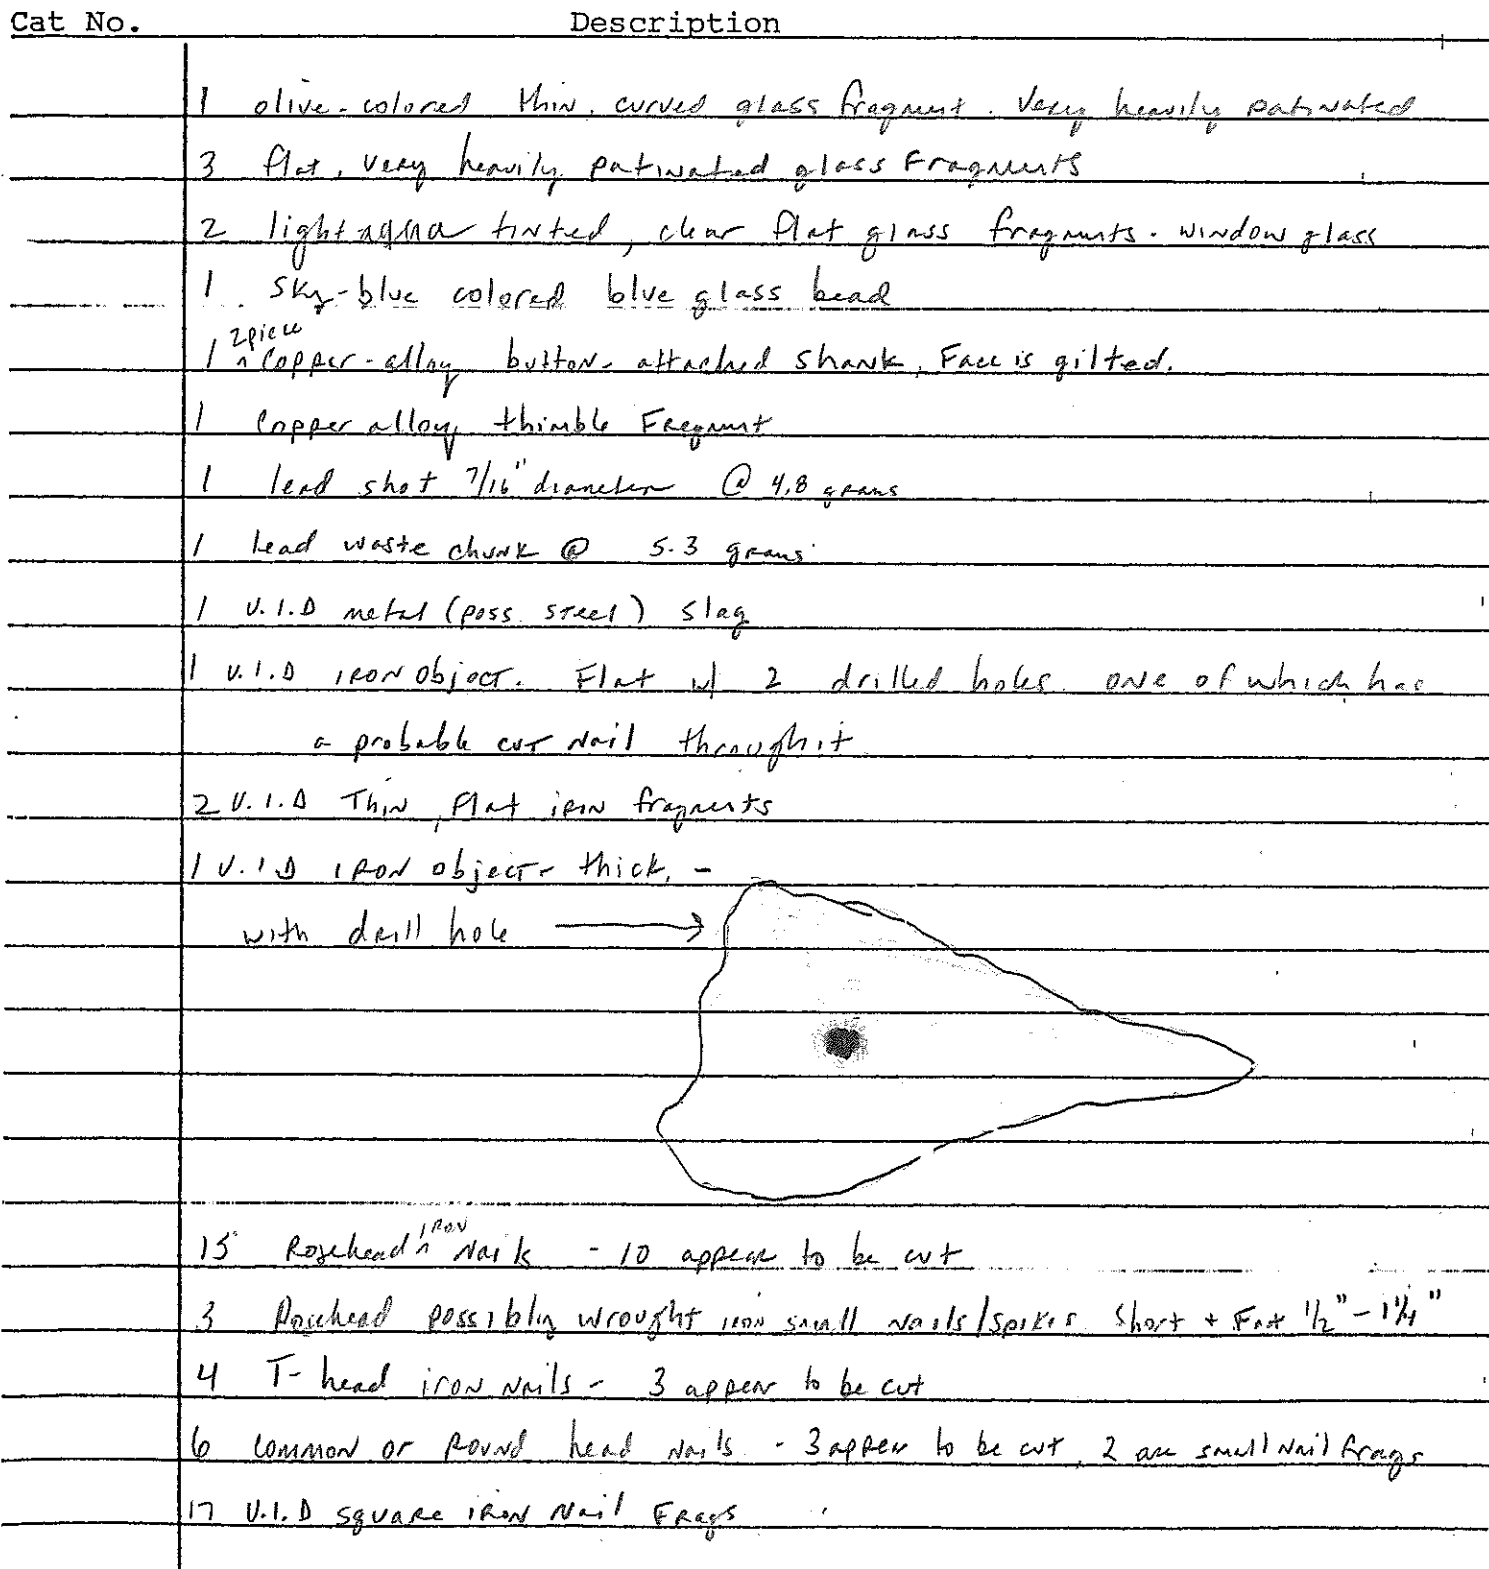 Cat No. Description
1 olive-colored thin, curved glass fragment. Very heavily patinated
3 flat, very heavily patinated glass Fragments
2 light aqua tinted, clear flat glass fragments - window glass
1 sky-blue colored blue glass bead
1 ^2piece copper-alloy button - attached shank, Face is gilted.
1 Copper alloy thimble Fragment
1 lead shot 7/16" diameter @ 4.8 grams
1 lead waste chunk @ 5.3 grams
1 U.I.D metal (poss. steel) slag
1 U.I.D iron object. Flat w/ 2 drilled holes one of which has
a probable cut nail through it
2 U.I.D Thin, flat iron fragments
1 U.I.D iron object - thick, -
with drill hole →
15 Rosehead ^iron Nails - 10 appear to be cut
3 Rosehead possibly wrought iron small nails/spikes Short + Fat 1/2" - 1 1/4"
4 T-head iron nails - 3 appear to be cut
6 common or round head nails - 3 appear to be cut, 2 are small nail frags
17 U.I.D square iron Nail Frags